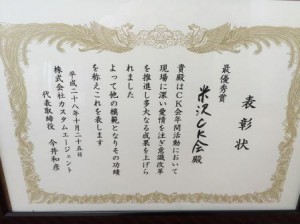 表彰状
最優秀賞
米沢CK会殿
貴殿はCK会年間活動において
現場に深い愛情を注ぎ意識改革
を推進し多大なる成果を上げら
れました
よって他の模範となりその功績
を称えこれを表します
平成二十八年十月二十五日
株式会社カスタムエージェント
代表取締役 今井和彦